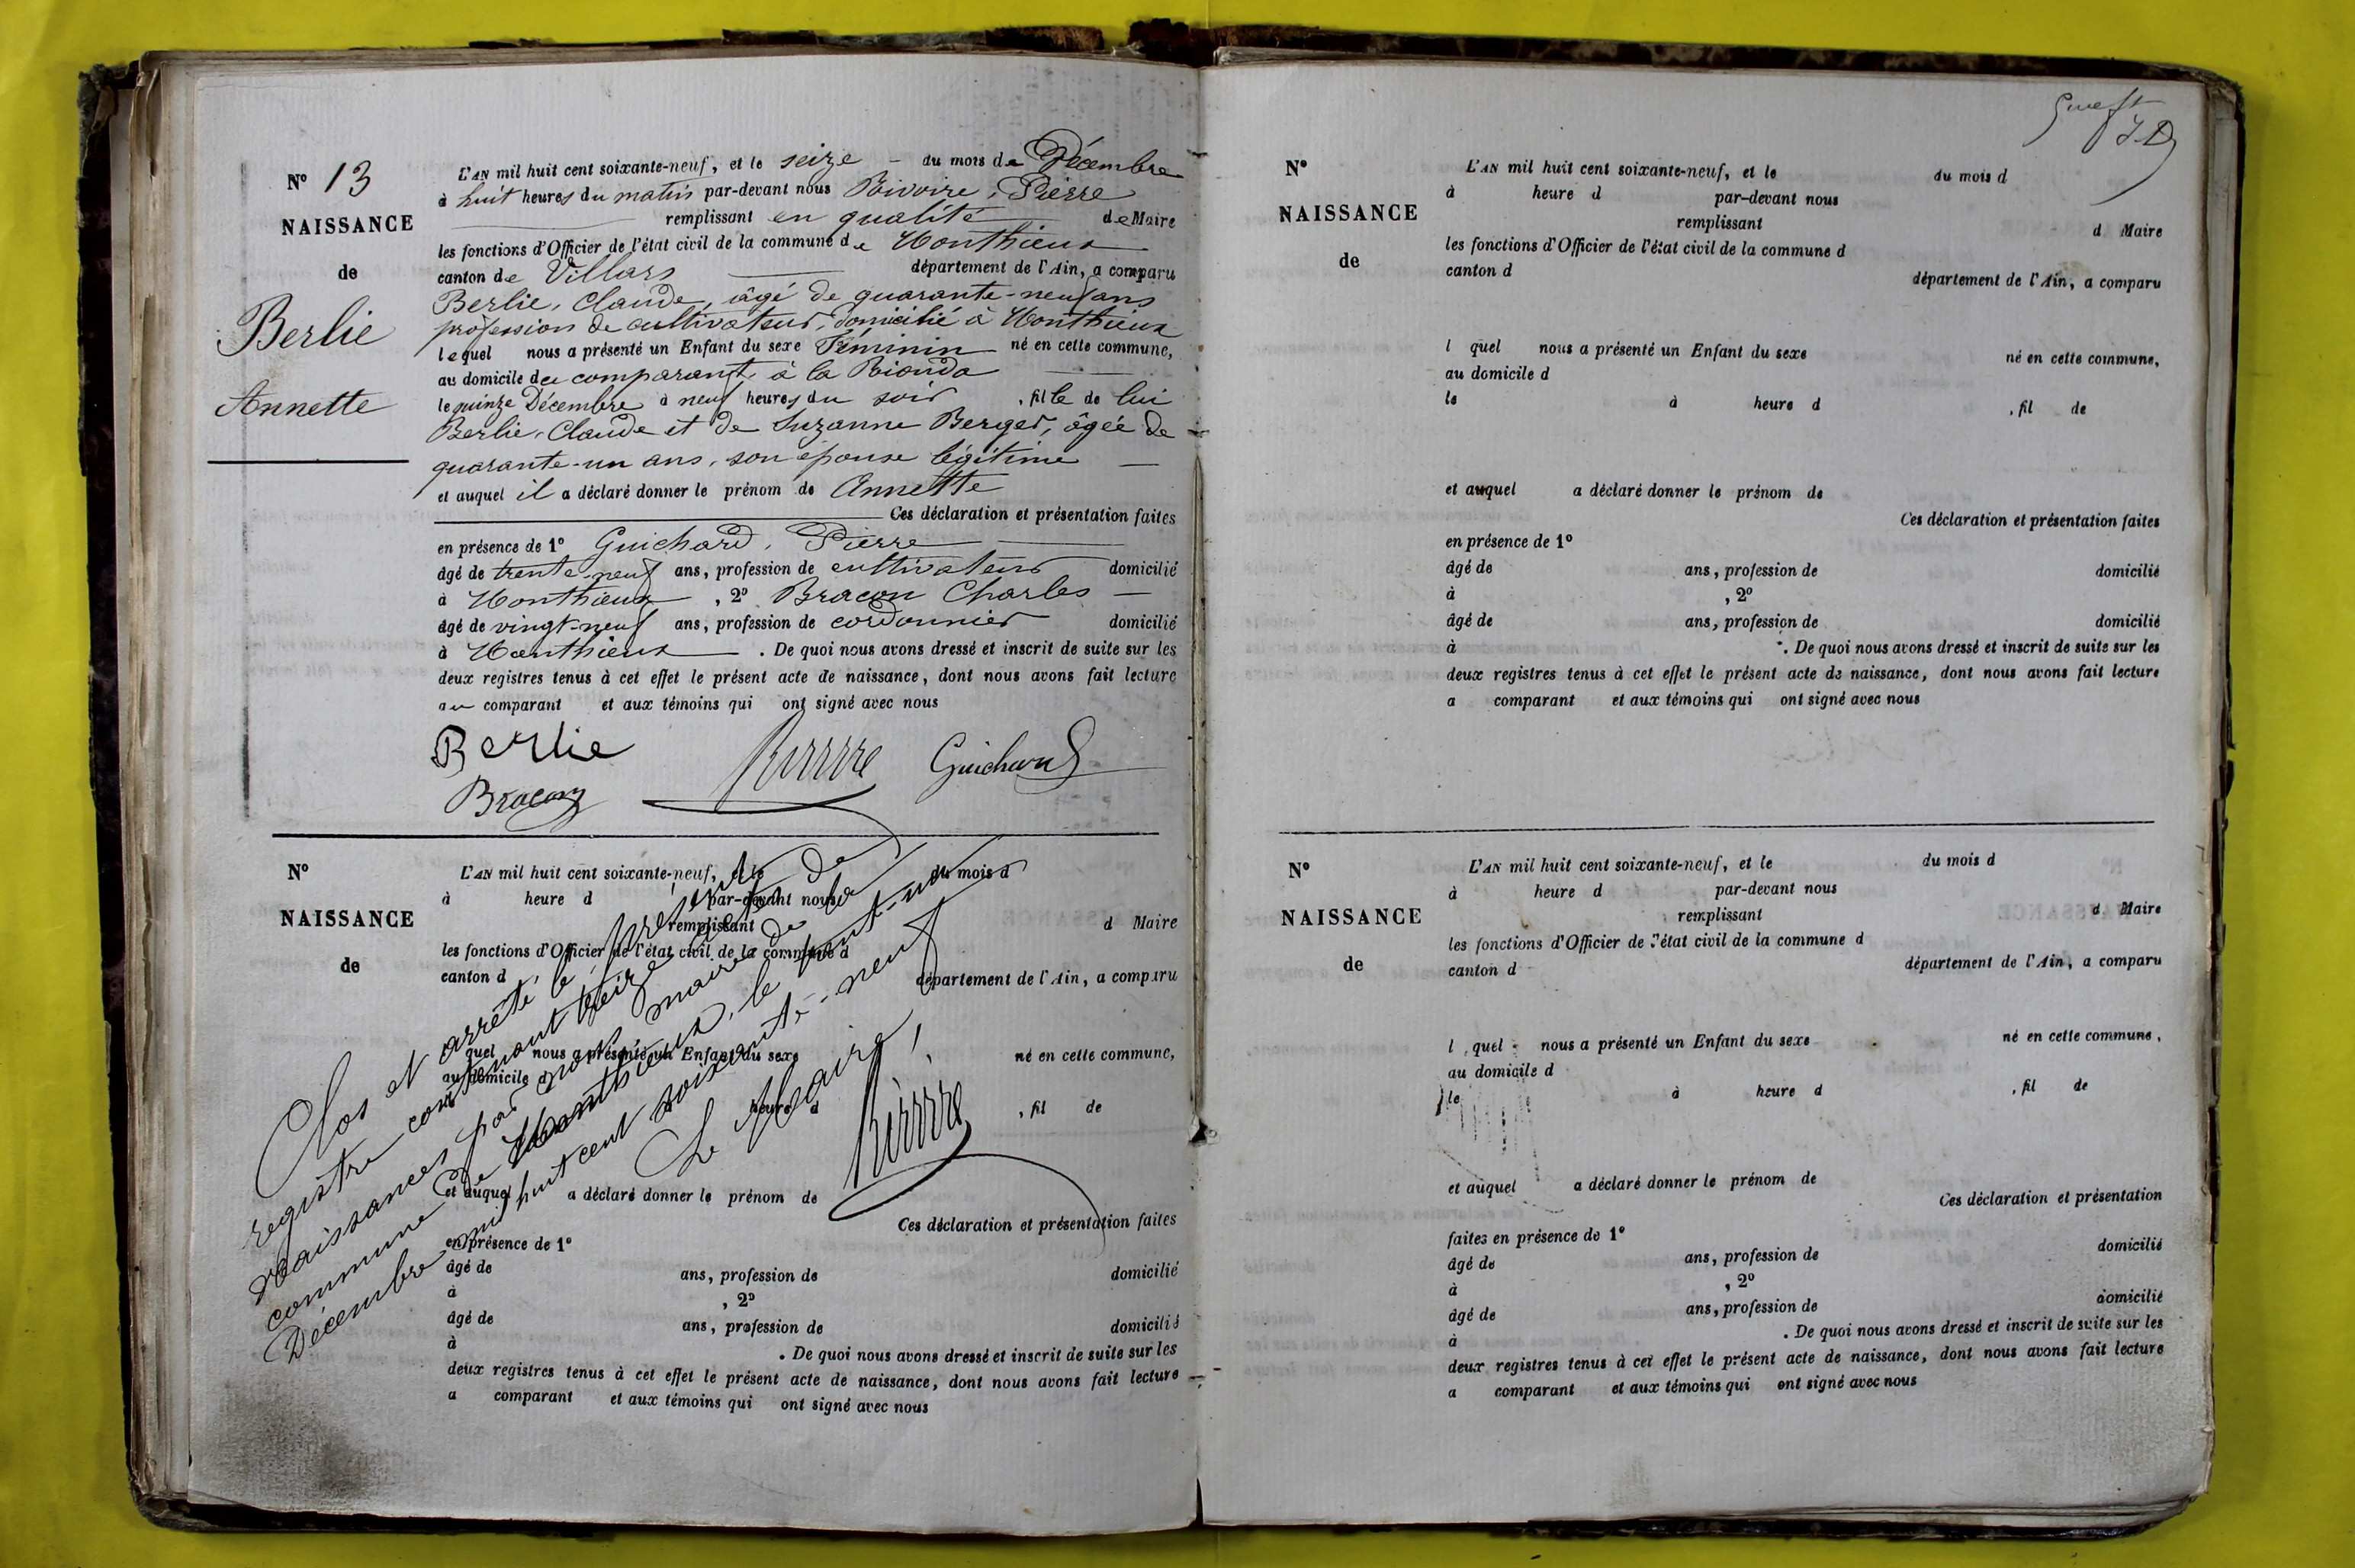 N° 13
NAISSANCE
de
Berlie
Annette
L'AN mil huit cent soixante-neuf, et le seize - du mois de Décembre
à huit heures du matin par-devant nous Rivoire, Pierre
remplissant en qualité de Maire
les fonctions d'Officier de l'état civil de la commune de Monthieux
canton de Villars département de l'Ain, a comparu
Berlie, Claude, âgé de quarante-neuf ans
profession de cultivateur, domicilié à Monthieux
lequel nous a présenté un Enfant du sexe Féminin né en cette commune,
au domicile du comparant, à la
le quinze Décembre à neuf heures du soir, fille de lui
Berlie, Claude et de Suzanne Berger, âgée de
quarante-un ans, son épouse légitime
et auquel il a déclaré donner le prénom de Annette
Ces déclaration et présentation faites
en présence de 1° Guichard, Pierre
âgé de trente-neuf ans, profession de cultivateur domicilié
à Monthieux, 2° Bracon Charles
âgé de vingt-neuf ans, profession de cordonnier domicilié
à Monthieux. De quoi nous avons dressé et inscrit de suite sur les
deux registres tenus à cet effet le présent acte de naissance, dont nous avons fait lecture
au comparant et aux témoins qui ont signé avec nous
Berlie Rivoire Guichard
Bracon
N°
NAISSANCE
de
L'AN mil huit cent soixante-neuf, et le du mois d
à heure d par-devant nous
remplissant d Maire
les fonctions d'Officier de l'état civil de la commune d
canton d département de l'Ain, a comparu
quel nous a présenté un Enfant du sexe né en cette commune,
au domicile d
heure d , fil de
et auquel a déclaré donner le prénom de
Ces déclaration et présentation faites
en présence de 1°
âgé de ans, profession de domicilié
à , 2°
âgé de ans, profession de domicilié
à . De quoi nous avons dressé et inscrit de suite sur les
deux registres tenus à cet effet le présent acte de naissance, dont nous avons fait lecture
a comparant et aux témoins qui ont signé avec nous
Clos et arrêté le présent
registre contenant treize actes de
naissances par nous maire de la
commune de Monthieux, le trent-un
Décembre mil huit cent soixante-neuf
Le Maire,
Rivoire
N°
NAISSANCE
de
L'AN mil huit cent soixante-neuf, et le du mois d
à heure d par-devant nous
remplissant d Maire
les fonctions d'Officier de l'état civil de la commune d
canton d département de l'Ain, a comparu
l quel nous a présenté un Enfant du sexe né en cette commune,
au domicile d
le à heure d , fil de
et auquel a déclaré donner le prénom de
Ces déclaration et présentation faites
en présence de 1°
âgé de ans, profession de domicilié
à , 2°
âgé de ans, profession de domicilié
à . De quoi nous avons dressé et inscrit de suite sur les
deux registres tenus à cet effet le présent acte de naissance, dont nous avons fait lecture
a comparant et aux témoins qui ont signé avec nous
N°
NAISSANCE
de
L'AN mil huit cent soixante-neuf, et le du mois d
à heure d par-devant nous
remplissant d Maire
les fonctions d'Officier de l'état civil de la commune d
canton d département de l'Ain, a comparu
l quel nous a présenté un Enfant du sexe né en cette commune,
au domicile d
le à heure d , fil de
et auquel a déclaré donner le prénom de
Ces déclaration et présentation
faites en présence de 1°
âgé de ans, profession de domicilié
à , 2°
âgé de ans, profession de domicilié
à . De quoi nous avons dressé et inscrit de suite sur les
deux registres tenus à cet effet le présent acte de naissance, dont nous avons fait lecture
a comparant et aux témoins qui ont signé avec nous